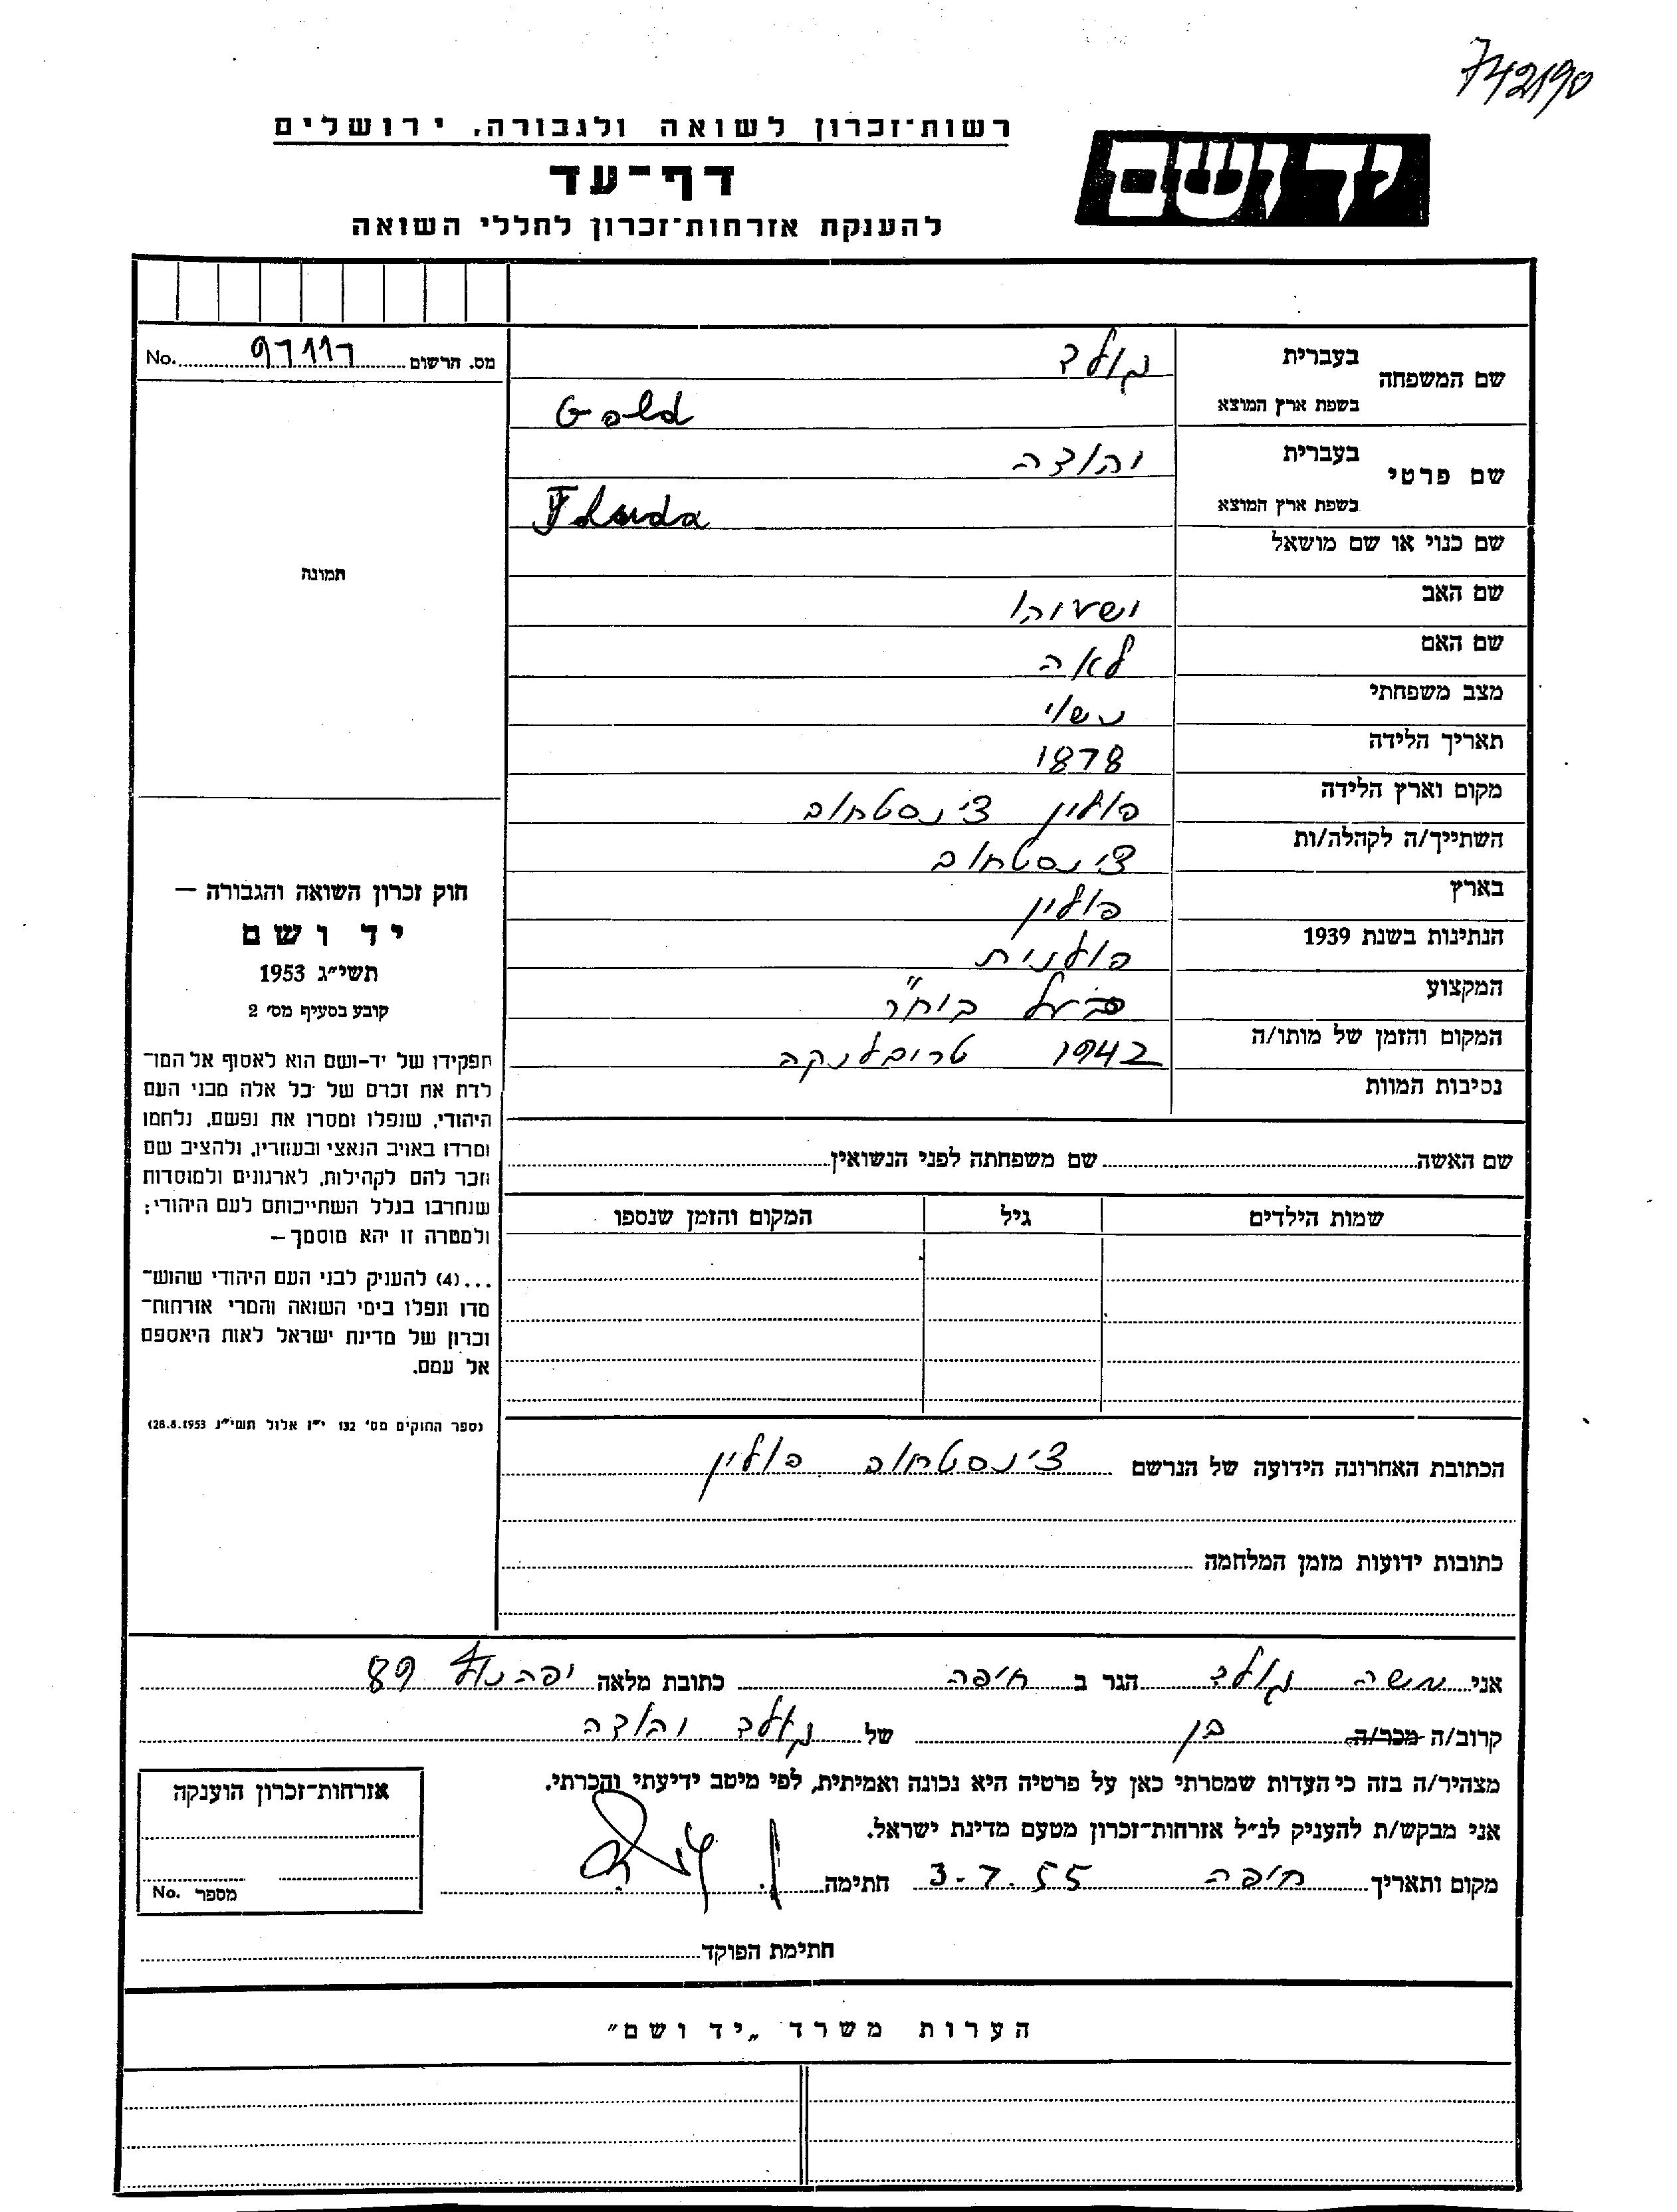 742190
רשות־זכרון לשואה ולגבורה, ירושלים
יד ושם
דף־עד
להענקת אזרחות־זכרון לחללי השואה
מס. הרשום 97117 No.
שם המשפחה בעברית גולד
בשפת ארץ המוצא Gold
שם פרטי בעברית יהודה
בשפת ארץ המוצא
שם כנוי או שם מושאל
תמונה
שם האב ישעיהו
שם האם לאה
מצב משפחתי נשוי
תאריך הלידה 1878
מקום וארץ הלידה פולין צ'נסטחוב
השתייך/ה לקהלה/ות צ'נסטחוב
בארץ פולין
הנתינות בשנת 1939 פולנית
המקצוע בעל ביח"ר
המקום והזמן של מותו/ה 1942 טריבלינקה
נסיבות המוות
שם האשה שם משפחתה לפני הנשואין
שמות הילדים גיל המקום והזמן שנספו
חוק זכרון השואה והגבורה —
יד ושם
תשי״ג 1953
קובע בסעיף מס׳ 2
תפקידו של יד-ושם הוא לאסוף אל המו־
לדת את זכרם של כל אלה מבני העם
היהודי, שנפלו ומסרו את נפשם, נלחמו
ומרדו באויב הנאצי ובעוזריו, ולהציב שם
וזכר להם לקהילות, לארגונים ולמוסדות
שנחרבו בגלל השתייכותם לעם היהודי;
ולמטרה זו יהא מוסמך —
...(4) להעניק לבני העם היהודי שהוש־
מדו ונפלו בימי השואה והמרי אזרחות־
זכרון של מדינת ישראל לאות היאספם
אל עמם.
(ספר החוקים מס׳ 132 י״ז אלול תשי״ג 28.8.1953)
הכתובת האחרונה הידועה של הנרשם צ'נסטחוב פולין
כתובות ידועות מזמן המלחמה
אני משה גולד הגר ב חיפה כתובת מלאה יפה נוף 89
קרוב/ה מכר/ה בן של גולד יהודה
מצהיר/ה בזה כי העדות שמסרתי כאן על פרטיה היא נכונה ואמיתית, לפי מיטב ידיעתי והכרתי.
אני מבקש/ת להעניק לנ״ל אזרחות־זכרון מטעם מדינת ישראל.
מקום ותאריך חיפה 3.7.55 חתימה
אזרחות־זכרון הוענקה
מספר No.
חתימת הפוקד
הערות משרד „יד ושם"